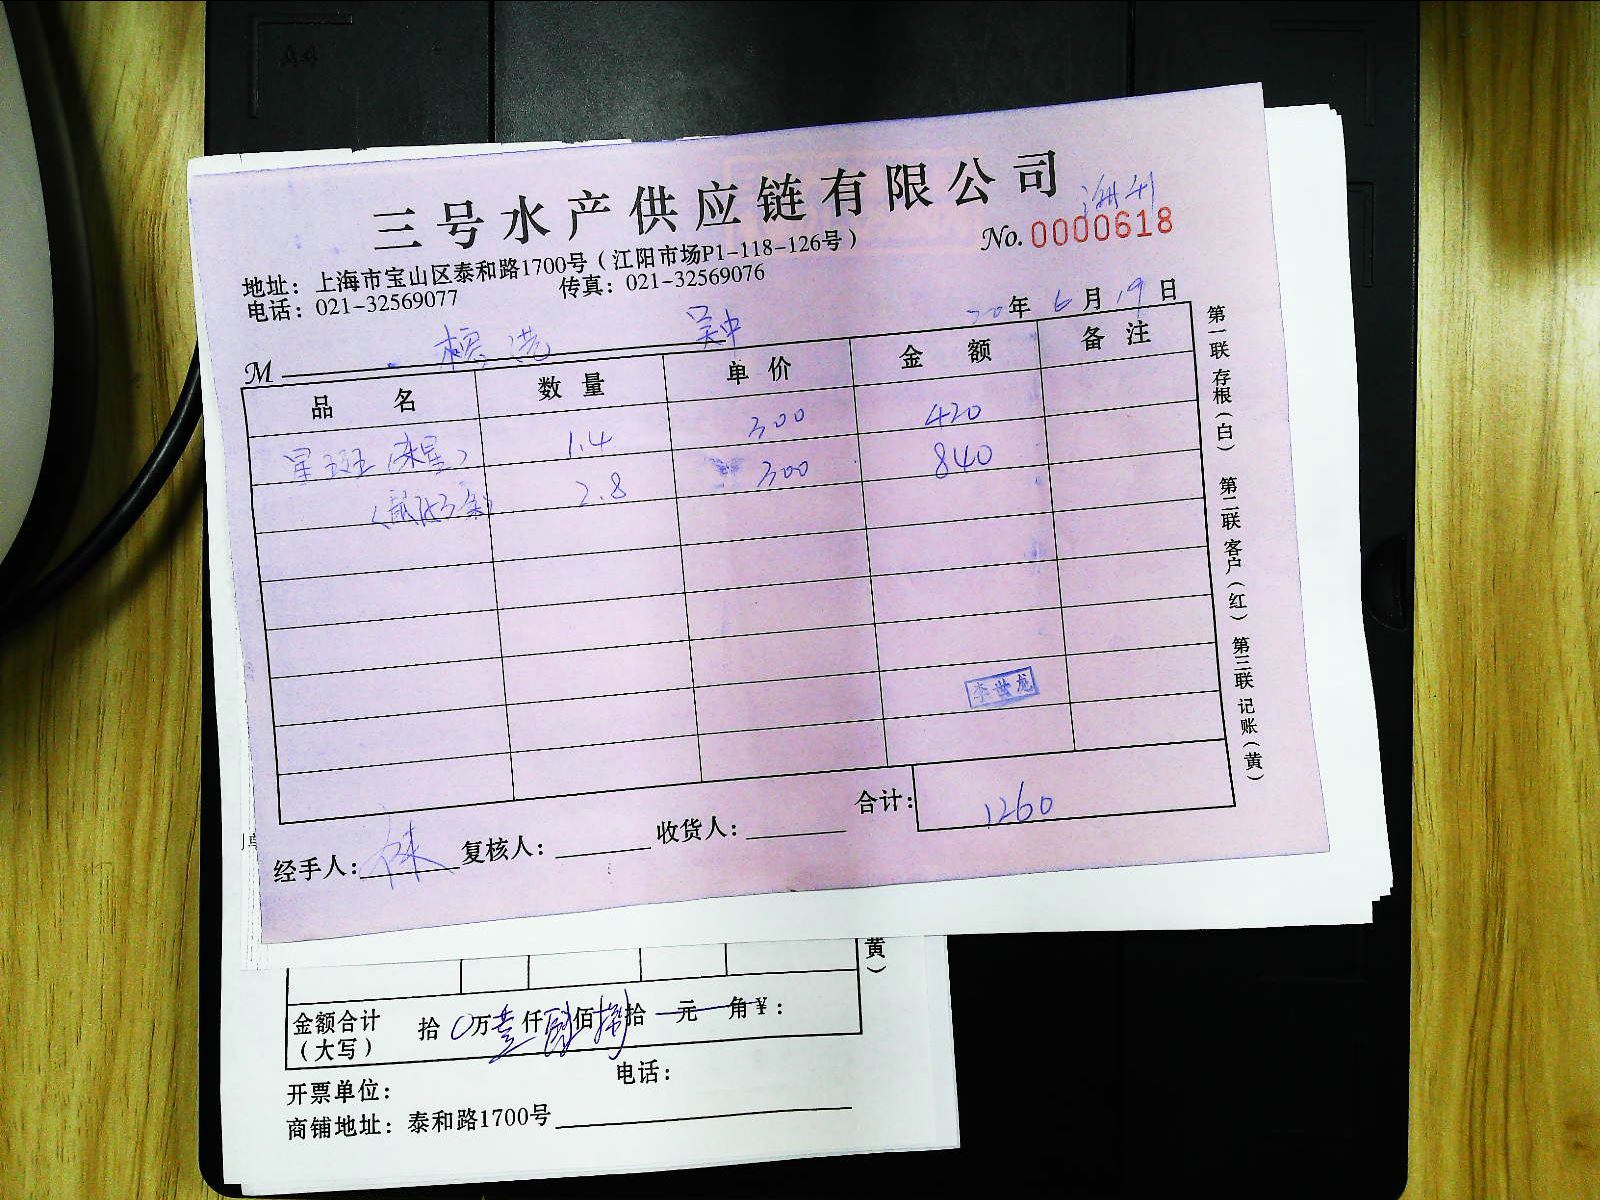 A4
三号水产供应链有限公司
No. 0000618
地址：上海市宝山区泰和路1700号（江阳市场P1-118-126号）
电话：021-32569077 传真：021-32569076
20年 6月 19日
M
品名 数量 单价 金额 备注
星斑 1.4 300 420
2.8 300 840
李世龙
合计：1260
经手人： 复核人： 收货人：
第一联 存根（白） 第二联 客户（红） 第三联 记账（黄）
黄）
金额合计（大写） 拾 0万 壹仟 佰 拾 元 角 ¥：
开票单位： 电话：
商铺地址：泰和路1700号